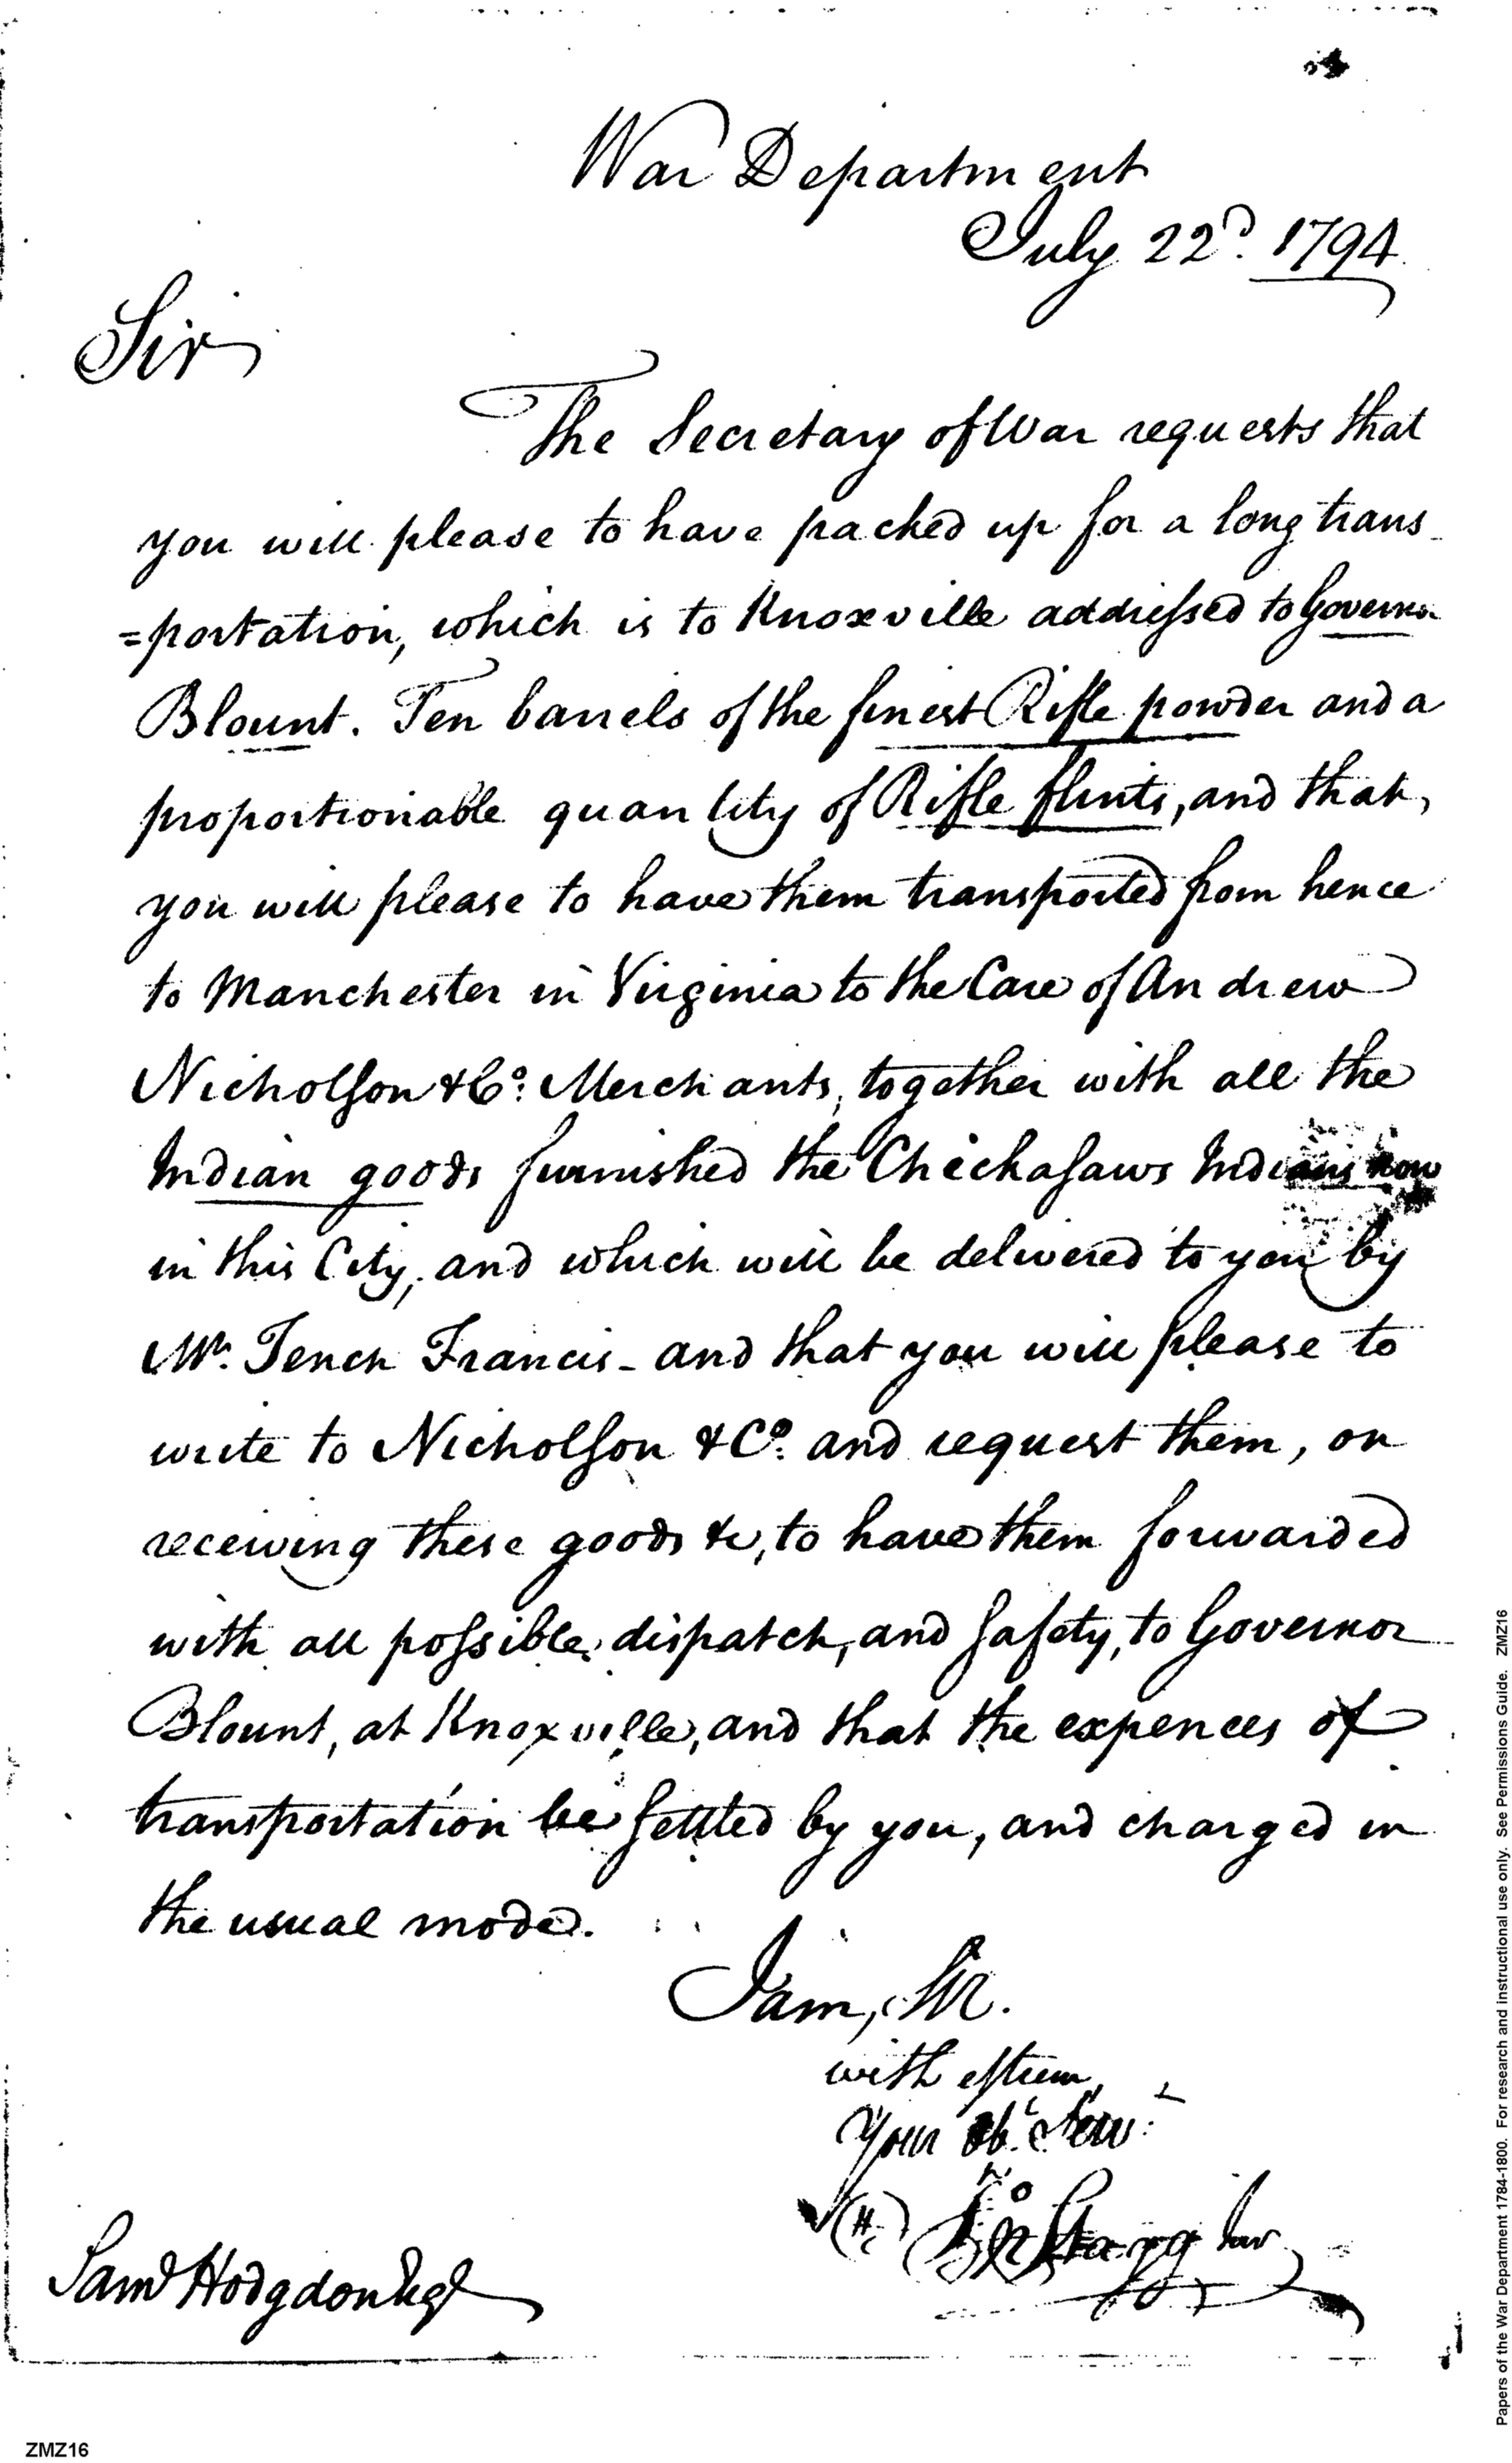 War Department
July 22d. 1794
Sir
The Secretary of War requests that
you will please to have packed up for a long trans-
=portation, which is to Knoxville addressed to Governor
Blount. Ten barrels of the finest Rifle powder and a
proportionable quantity of Rifle flints, and that,
you will please to have them transported from hence
to Manchester in Virginia to the Care of Andrew
Nicholson & Co. Merchants, together with all the
Indian goods furnished the Chickasaws Indians now
in this City, and which will be delivered to you by
Mr. Tench Francis - and that you will please to
write to Nicholson & Co. and request them, on
receiving these goods &c, to have them forwarded
with all possible dispatch, and safety, to Governor
Blount, at Knoxville, and that the expences of
transportation be settled by you, and charged in
the usual mode.
I am, Sir.
with esteem,
Your Obt. Serv.t
Jno Stagg Junr
Saml Hodgdon Esqr
ZMZ16
Papers of the War Department 1784-1800. For research and instructional use only. See Permissions Guide. ZMZ16